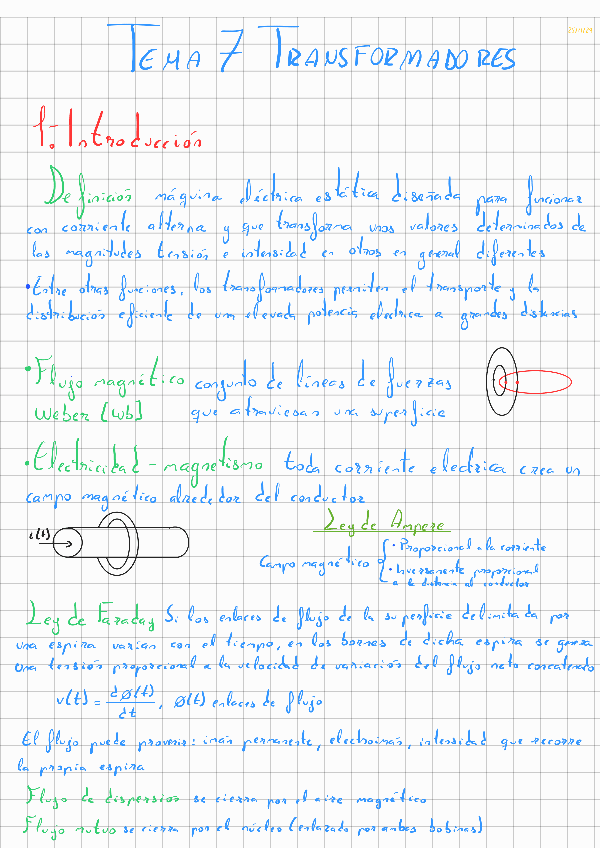 25/11/24
TEMA 7 TRANSFORMADORES
1.- Introducción
Definición máquina eléctrica estática diseñada para funcionar
con corriente alterna y que transforma unos valores determinados de
las magnitudes tensión e intensidad en otros en general diferentes
• Entre otras funciones, los transformadores permiten el transporte y la
distribución eficiente de una elevada potencia electrica a grandes distancias
• Flujo magnético conjunto de líneas de fuerzas
Weber [Wb] que atraviesan una superficie
• Electricidad - magnetismo toda corriente electrica crea un
campo magnético alrededor del conductor
i(t)
Ley de Ampere
Campo magnético { • Proporcional a la corriente
• Inversamente proporcional
a la distancia al conductor
Ley de Faraday Si los enlaces de flujo de la superficie delimitada por
una espira varían con el tiempo, en los bornes de dicha espira se genera
una tensión proporcional a la velocidad de variación del flujo neto concatenado
v(t) = dø(t)/dt, ø(t) enlaces de flujo
El flujo puede provenir: imán permanente, electroimán, intensidad que recorre
la propia espira
Flujo de dispersión se cierra por el aire magnético
Flujo mutuo se cierra por el núcleo (enlazado por ambas bobinas)